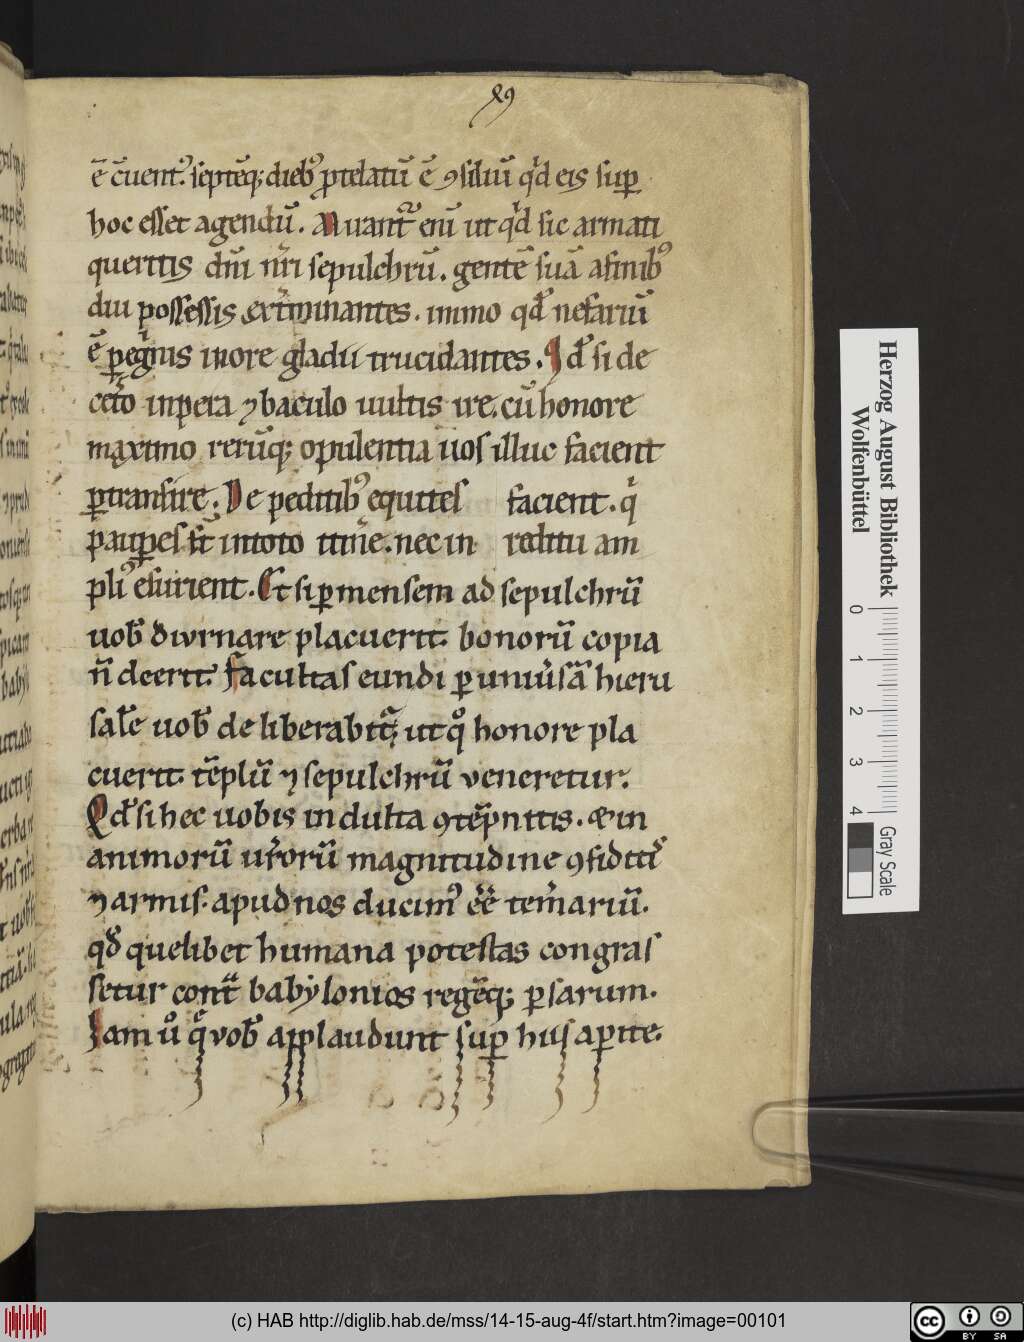 ē c̄uent᷒. septēq; dieb᷒ ꝓtelatū ē ꝯsiliū qͥd eis suꝑ
hoc esset agendū. Mirantᷓ eni̅ ut qͥd sic armati
queritis dn̅i nr̅i sepulchrū. gentē suā afinib᷒
diu possessis exͭminantes. immo qd̓ nefariū
ē peg̍nis inore gladii trucidantes. Qd̓ si de
cet̓o inpera ⁊ baculo uultis ire. cū honore
maximo rerūq; opulentia uos illuc facient
ꝑtransire. De peditib᷒ equites facient. qͥ
pauꝑes st̅ intoto itin̓e. nec in reditu am
pli᷒ esurient. Et si ꝑ mensem ad sepulchrū
uob̓ diurnare placuerit. bonorū copia
n̄ deerit. Facultas eundi ꝑ uniu̓sā hieru
sale̅ uob̓ deliberabit᷑ᷓ; ut qͦ honore pla
cuerit. te̅plū ⁊ sepulchrū veneretur.
Qd̓ si hec uobis indulta ꝯte̅pnitis. & in
animorū ur̓orū magnitudine ꝯfidit̓
⁊ armis. apud nos ducim᷒ ee̅ tem̓ariū.
qd̓ quelibet humana potestas congras
setur contᷓ babylonios regēq; ꝑsarum.
Iam u̓o qͤ vob̓ applaudunt suꝑ hiis aꝑite.
Herzog August Bibliothek
Wolfenbüttel
0 1 2 3 4
Gray Scale
(c) HAB http://diglib.hab.de/mss/14-15-aug-4f/start.htm?image=00101
cc
BY SA